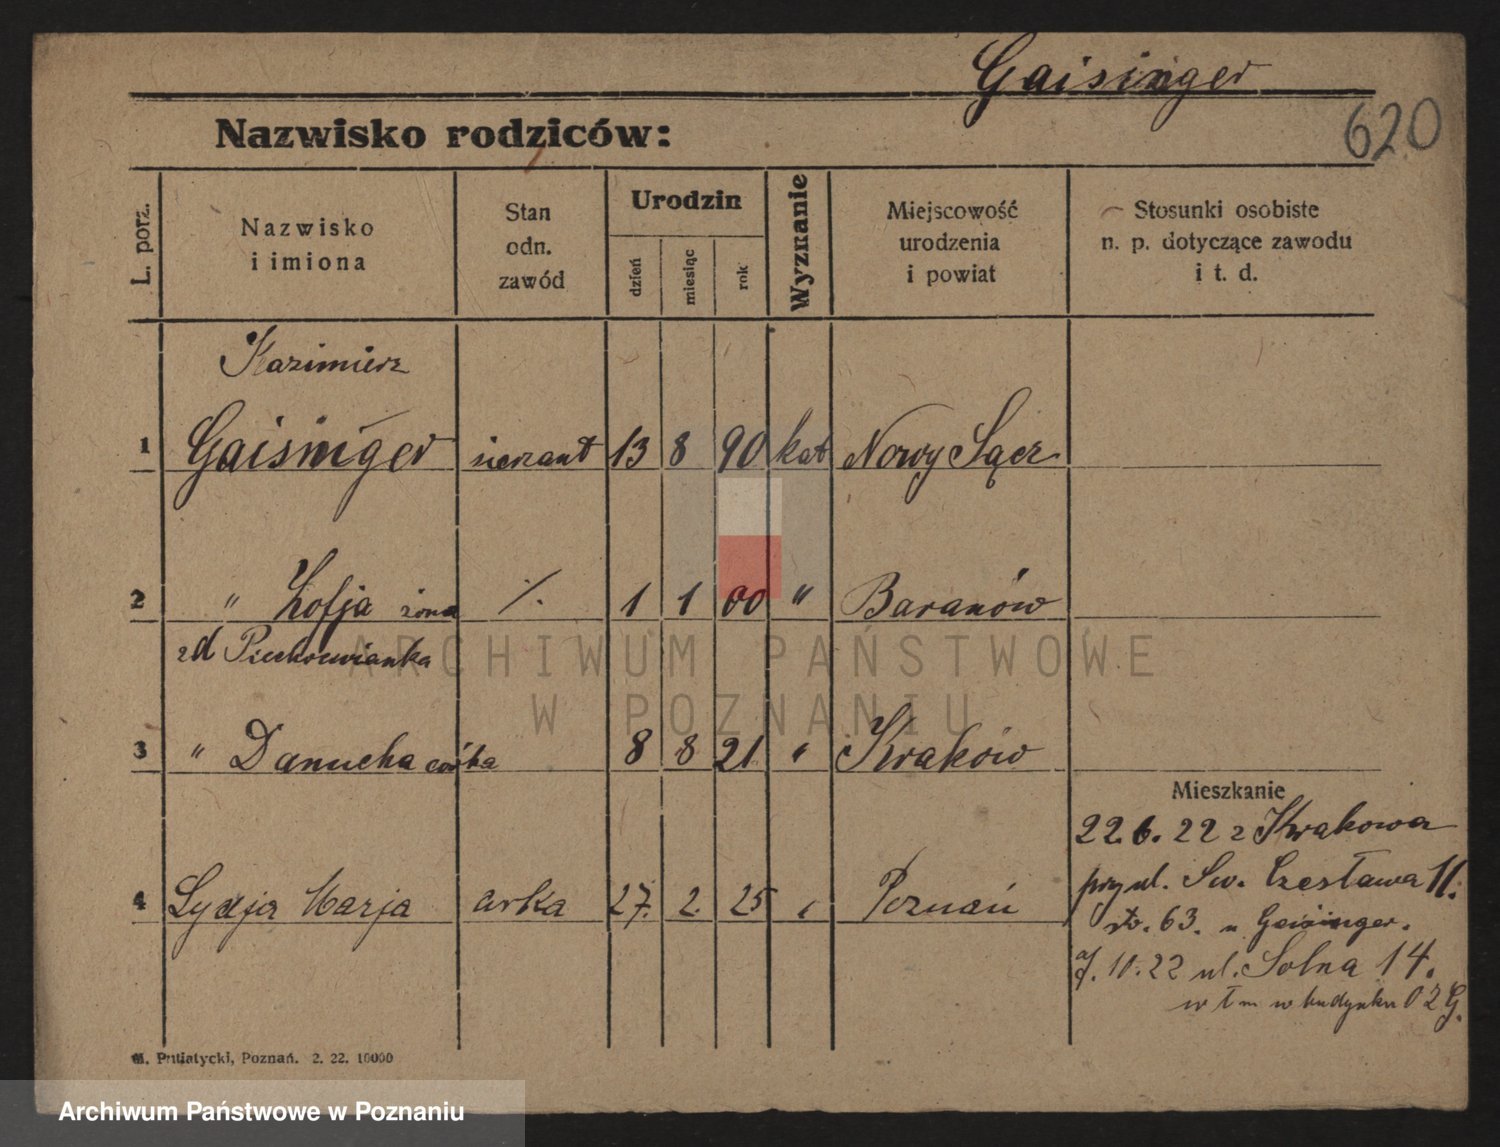 Gaisinger
620
Nazwisko rodziców:
L. porz.
Nazwisko
i imiona
Stan
odn.
zawód
Urodzin
dzień
miesiąc
rok
Wyznanie
Miejscowość
urodzenia
i powiat
Stosunki osobiste
n. p. dotyczące zawodu
i t. d.
Kazimierz
1 Gaisinger sierzant 13 8 90 kat Nowy Sącz
2 " Zofja żona ·/. 1 1 00 " Baranów
zd Piechowianka
ARCHIWUM PAŃSTWOWE
W POZNANIU
3 " Danucha córka 8 8 21 " Kraków
Mieszkanie
22.6.22 z Krakowa
przy ul. Św. Czesława 11.
4 Lydja Marja córka 27. 2. 25 " Poznań
63. u Gaisinger.
10.22 ul. Solna 14.
w budynku 02 G.
M. Putiatycki, Poznań. 2. 22. 10000
Archiwum Państwowe w Poznaniu